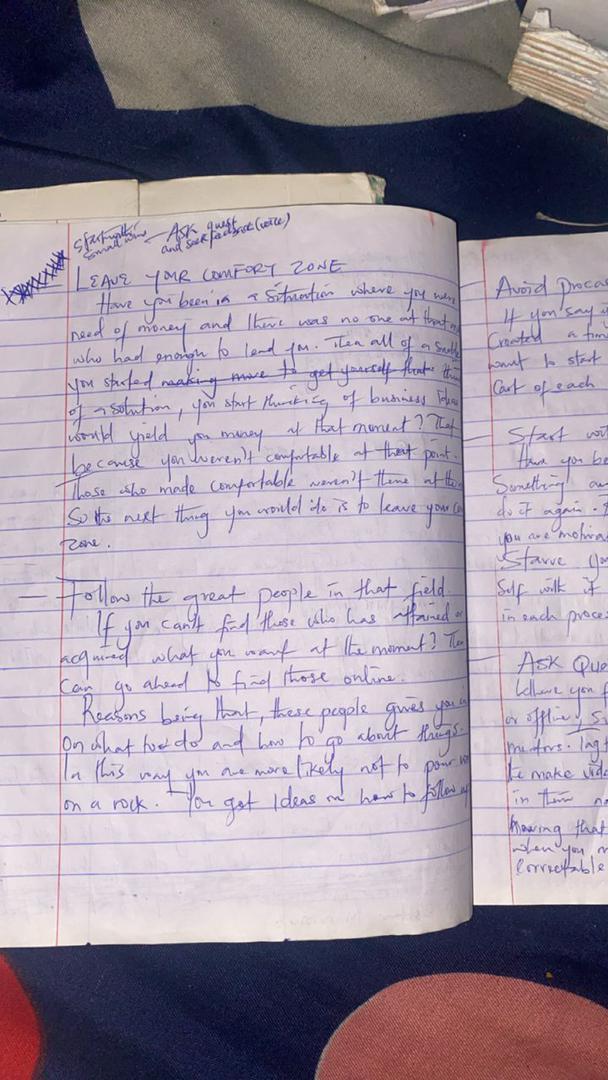 Start with small wins — Ask quest
and seek feedback (voice)
LEAVE YOUR COMFORT ZONE
Have you been in a situation where you were
need of money and there was no one at that
who had enough to lend you. Then all of a
you started making move to get yourself that
of a solution, you start thinking of business Ideas
would yield you money at that moment? That
because you weren't comfortable at that point.
Those who made comfortable weren't there at
So the next thing you would do is to leave your
zone.
— Follow the great people in that field.
If you can't find those who has attained or
acquired what you want at the moment? The
Can go ahead to find those online.
Reasons being that, these people gives you
On what to do and how to go about things.
In this way you are more likely not to pour
on a rock. You get Ideas on how to follow up
— Avoid Proca
If you say i
Created a tim
want to start
Cart of each
— Start wit
Have you be
Something an
do it again.
you are motiva
Starve you
Self with it
in each proce
— ASK QUE
Where you f
or offline,
mentors. Tag
to make vide
in them
Knowing that
when you m
Correctable